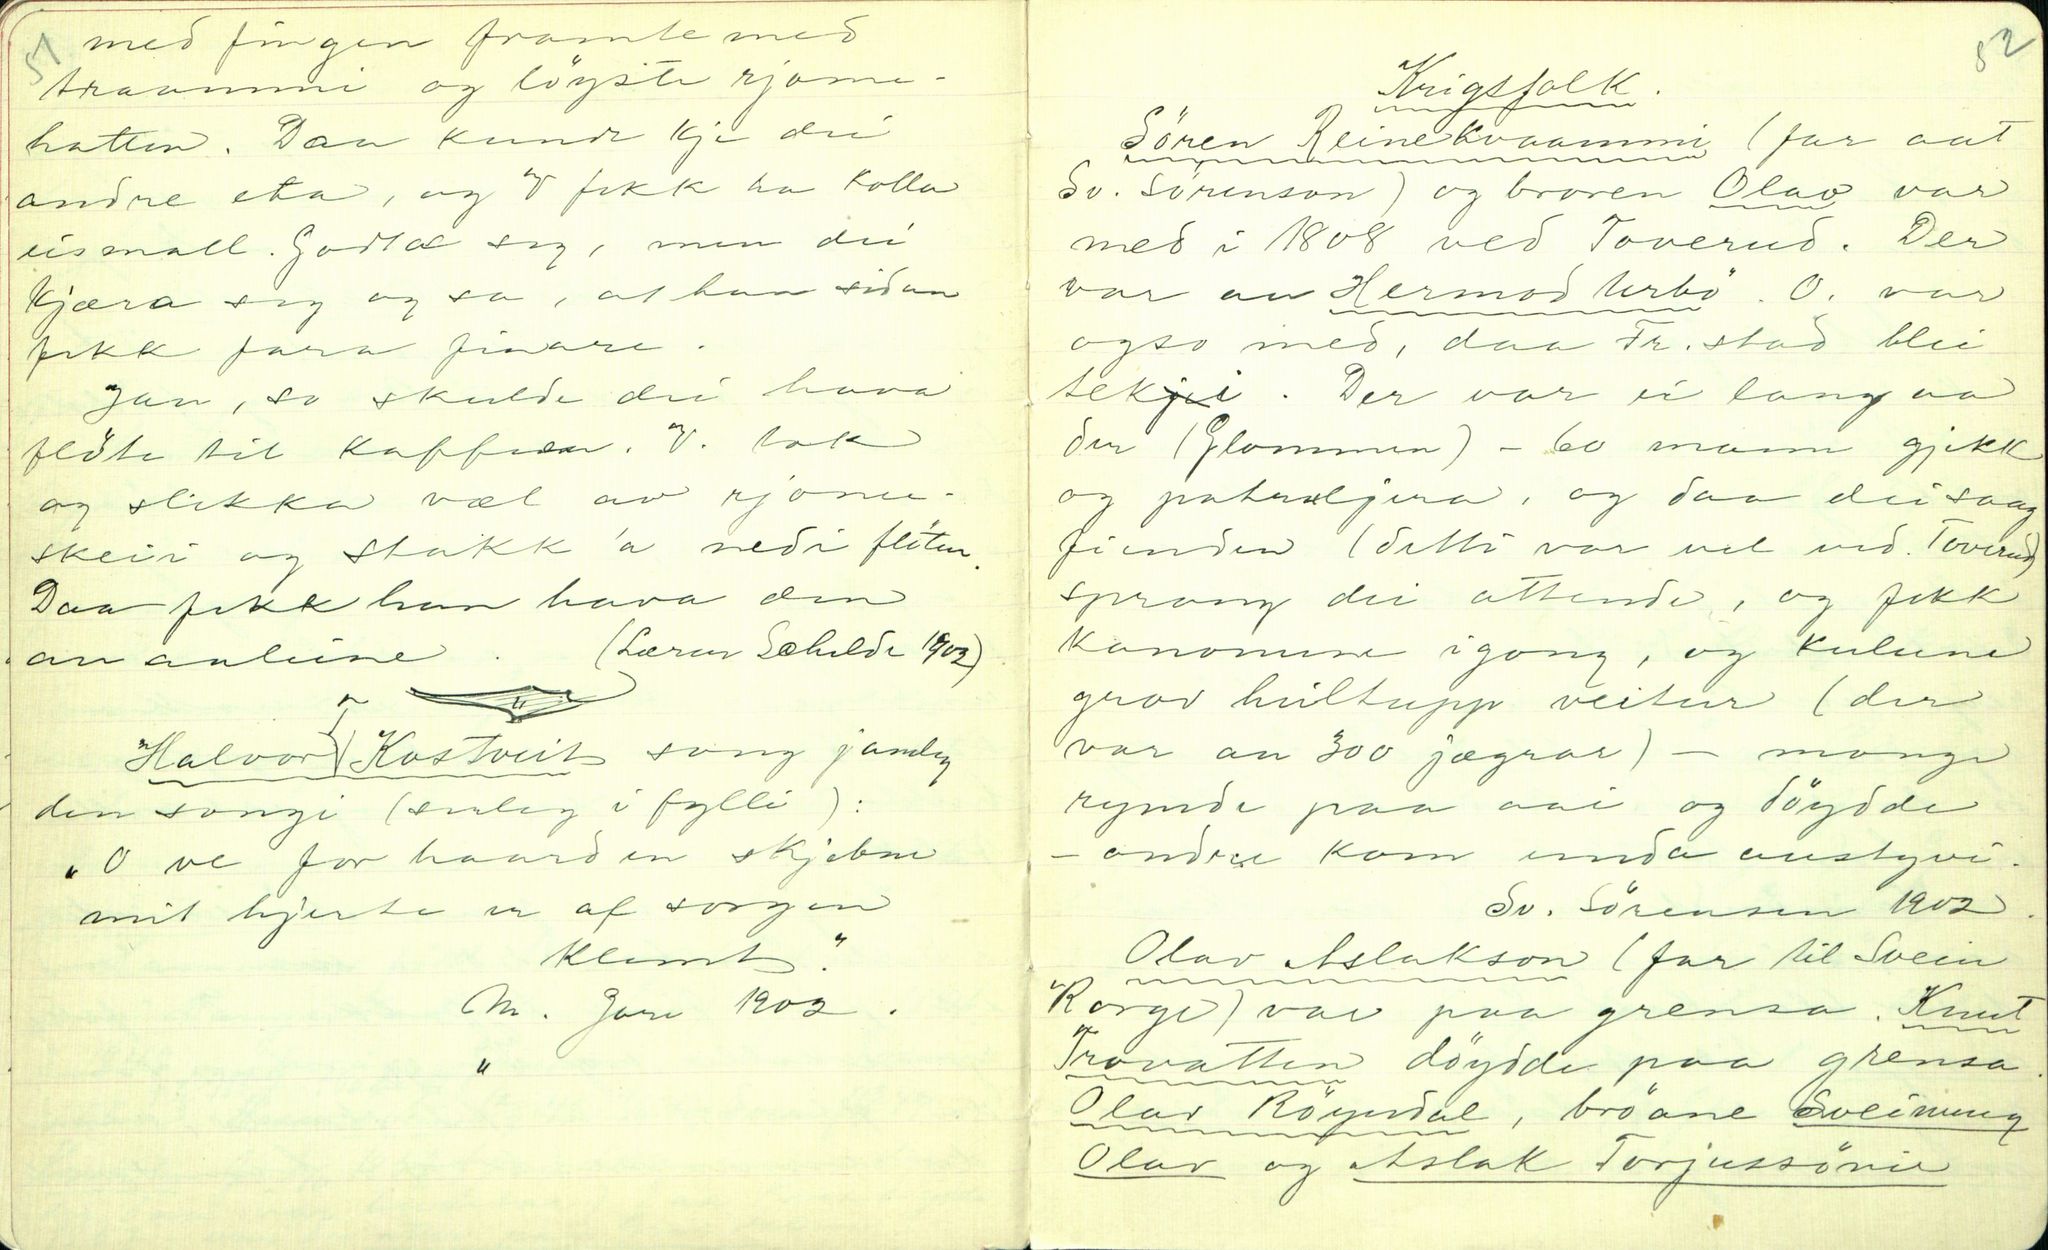 51
med fingen framte med
traammi og löyste rjome-
hatten. Daa kunde kje dei
andre eta, og V fekk ha kolla
eismall. Godtæ seg, men dei
kjæra seg og sa, at han sidan
fekk fara finare.
Jau, so skulde dei hava
flöte til kaffien. V. tok
og slikka væl av rjome-
skeii og stakk 'a nedi flöten.
Daa fekk han hava den
au aaleine. (Lærer Schilde 1902)
"
Halvor Kostveit song jamleg
den songi (serleg i fylli):
"O ve for haard en skjebne
mit hjerte er af sorgen
klemt."
M. Jore 1902.
"
52
Krigsfolk.
Sören Reinekvaammi (far aat
Sv. Sörenson) og broren Olav var
med i 1808 ved Toverud. Der
var au Hermod Urbö. O. var
ogso med, daa Fr.stad blei
tekji. Der var ei lang aa
der (Glommen) - 60 mann gjekk
og patruljera, og daa dei saag
fienden (detti var vel ved Toverud)
sprang dei attende, og fekk
kanonune igong, og kulune
grov heiltupp veitur (der
var au 300 jægrar) - mange
rymde paa aai og döydde
- andre kom unda austyvi.
Sv. Sörensen 1902.
Olav Aslakson (far til Svein
Rorge) var paa grensa. Knut
Trovatten döydde paa grensa.
Olav Röyndal, bröane Sveinung
Olav og Aslak Torjussönir